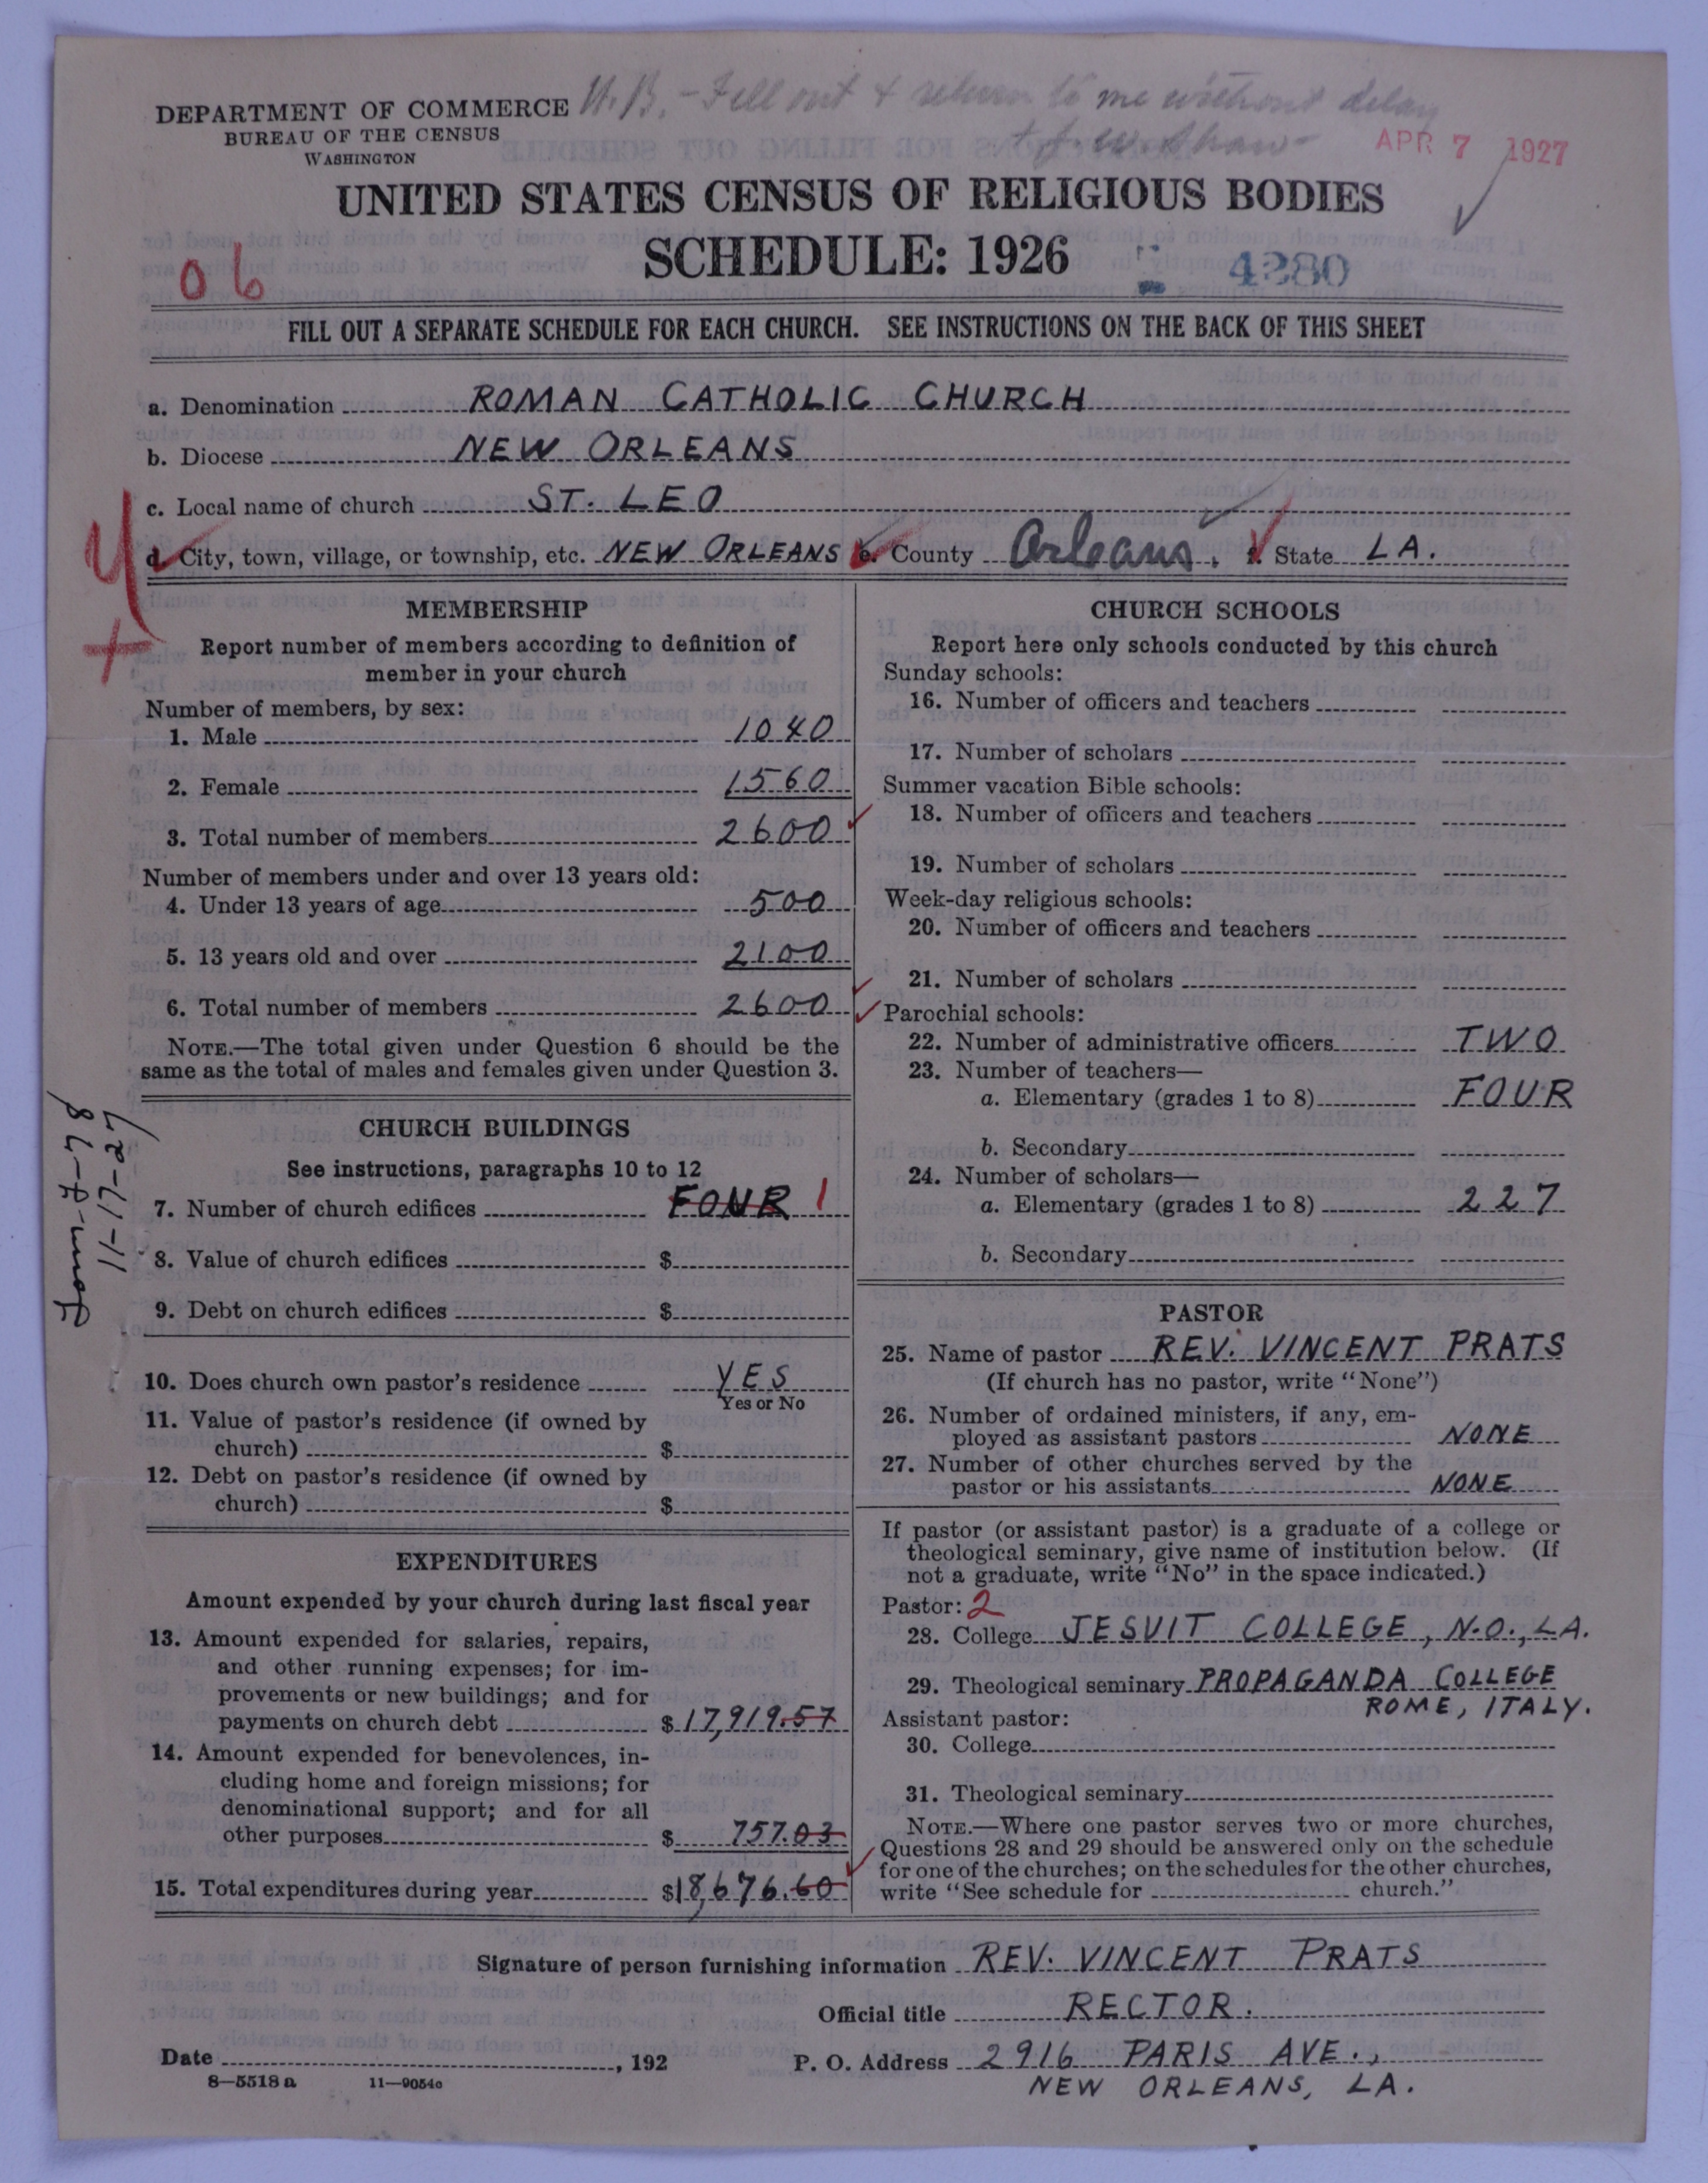 DEPARTMENT OF COMMERCE
BUREAU OF THE CENSUS
WASHINGTON
N.B. - Fill out & return to me without delay
+ J. W. Shaw -
APR 7 1927
UNITED STATES CENSUS OF RELIGIOUS BODIES
SCHEDULE: 1926
4280
06
FILL OUT A SEPARATE SCHEDULE FOR EACH CHURCH. SEE INSTRUCTIONS ON THE BACK OF THIS SHEET
a. Denomination ROMAN CATHOLIC CHURCH
b. Diocese NEW ORLEANS
c. Local name of church ST. LEO
d. City, town, village, or township, etc. NEW ORLEANS e. County Orleans. f. State LA.
MEMBERSHIP
Report number of members according to definition of
member in your church
Number of members, by sex:
1. Male 1040
2. Female 1560
3. Total number of members 2600
Number of members under and over 13 years old:
4. Under 13 years of age 500
5. 13 years old and over 2100
6. Total number of members 2600
NOTE.—The total given under Question 6 should be the
same as the total of males and females given under Question 3.
CHURCH BUILDINGS
See instructions, paragraphs 10 to 12
7. Number of church edifices FOUR 1
8. Value of church edifices $
9. Debt on church edifices $
10. Does church own pastor's residence YES
Yes or No
11. Value of pastor's residence (if owned by
church) $
12. Debt on pastor's residence (if owned by
church) $
11-17-27
EXPENDITURES
Amount expended by your church during last fiscal year
13. Amount expended for salaries, repairs,
and other running expenses; for im-
provements or new buildings; and for
payments on church debt $ 17,919.57
14. Amount expended for benevolences, in-
cluding home and foreign missions; for
denominational support; and for all
other purposes $ 757.03
15. Total expenditures during year $18,676.60
CHURCH SCHOOLS
Report here only schools conducted by this church
Sunday schools:
16. Number of officers and teachers
17. Number of scholars
Summer vacation Bible schools:
18. Number of officers and teachers
19. Number of scholars
Week-day religious schools:
20. Number of officers and teachers
21. Number of scholars
Parochial schools:
22. Number of administrative officers TWO
23. Number of teachers—
a. Elementary (grades 1 to 8) FOUR
b. Secondary
24. Number of scholars—
a. Elementary (grades 1 to 8) 227
b. Secondary
PASTOR
25. Name of pastor REV. VINCENT PRATS
(If church has no pastor, write "None")
26. Number of ordained ministers, if any, em-
ployed as assistant pastors NONE
27. Number of other churches served by the
pastor or his assistants NONE
If pastor (or assistant pastor) is a graduate of a college or
theological seminary, give name of institution below. (If
not a graduate, write "No" in the space indicated.)
Pastor: 2
28. College JESUIT COLLEGE, N.O., LA.
29. Theological seminary PROPAGANDA COLLEGE
ROME, ITALY.
Assistant pastor:
30. College
31. Theological seminary
NOTE.—Where one pastor serves two or more churches,
Questions 28 and 29 should be answered only on the schedule
for one of the churches; on the schedules for the other churches,
write "See schedule for church."
Signature of person furnishing information REV. VINCENT PRATS
Official title RECTOR.
Date , 192
P. O. Address 2916 PARIS AVE.,
NEW ORLEANS, LA.
8—5518 a 11—9054a